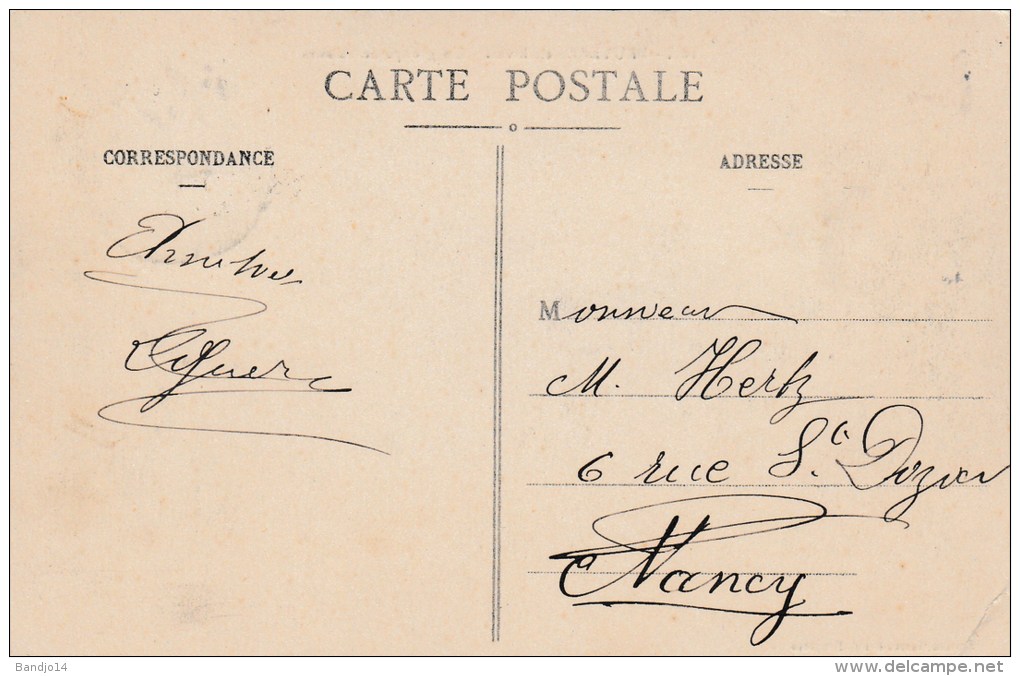 CARTE POSTALE
CORRESPONDANCE
ADRESSE
Monsieur
M. Hertz
6 rue St Dizier
Nancy
Bandjo14
www.delcampe.net